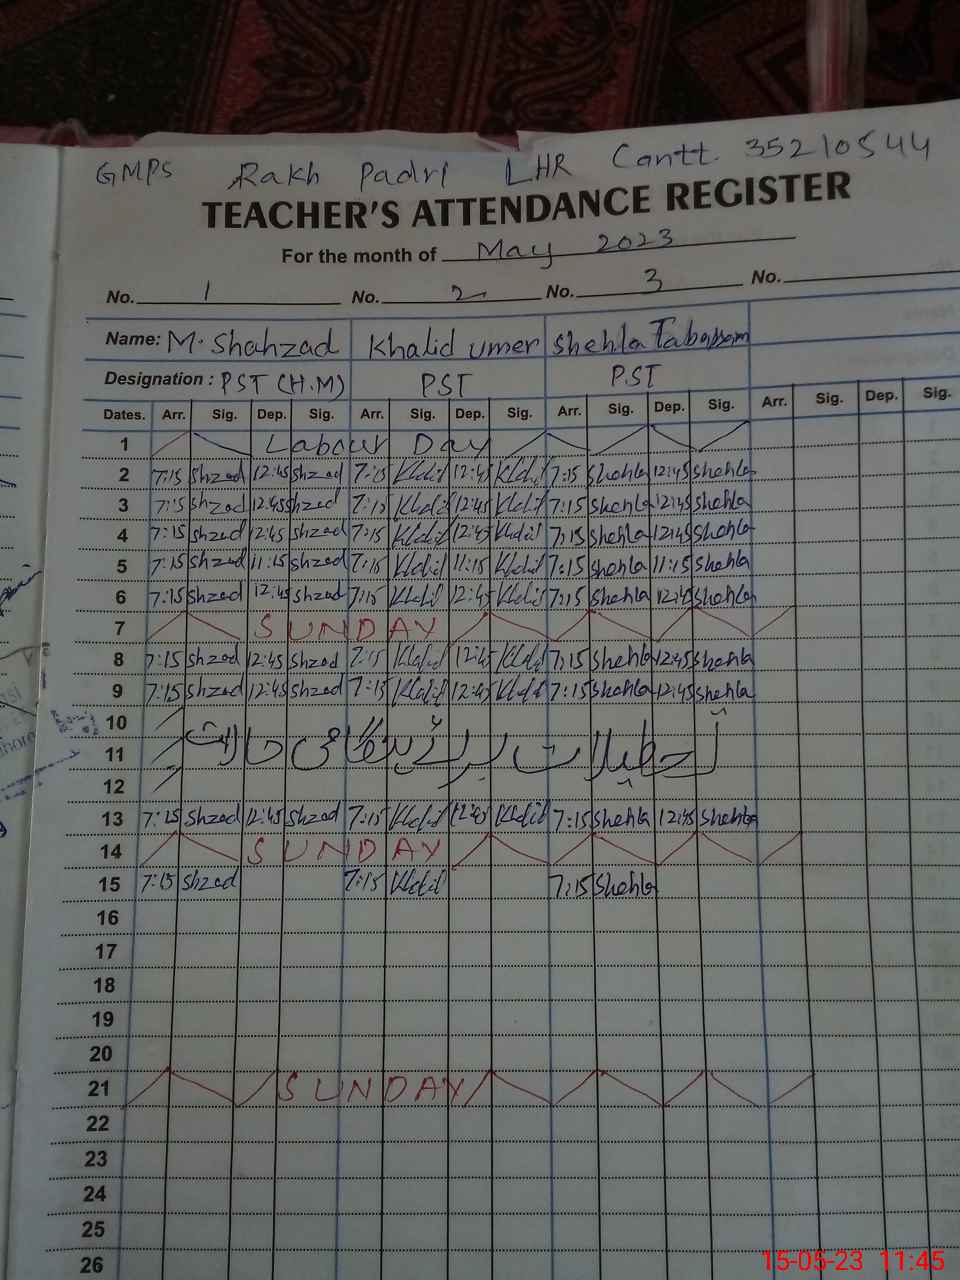 GMPS Rakh Padri LHR Cantt. 35210544
TEACHER'S ATTENDANCE REGISTER
For the month of May 2023
No. 1 No. 2 No. 3 No.
Name: M. Shahzad Khalid umer Shehla Tabassam
Designation : PST (H.M) PST PST
Dates. Arr. Sig. Dep. Sig. Arr. Sig. Dep. Sig. Arr. Sig. Dep. Sig. Arr. Sig. Dep. Sig.
1 Labour Day
2 7:15 Shzad 12:45 Shzad 7:15 Khalid 12:45 Khalid 7:15 Shehla 12:45 Shehla
3 7:15 Shzad 12:45 Shzad 7:15 Khalid 12:45 Khalid 7:15 Shehla 12:45 Shehla
4 7:15 Shzad 12:45 Shzad 7:15 Khalid 12:45 Khalid 7:15 Shehla 12:45 Shehla
5 7:15 Shzad 11:15 Shzad 7:15 Khalid 11:15 Khalid 7:15 Shehla 11:15 Shehla
6 7:15 Shzad 12:45 Shzad 7:15 Khalid 12:45 Khalid 7:15 Shehla 12:45 Shehla
7 SUNDAY
8 7:15 Shzad 12:45 Shzad 7:15 Khalid 12:45 Khalid 7:15 Shehla 12:45 Shehla
9 7:15 Shzad 12:45 Shzad 7:15 Khalid 12:45 Khalid 7:15 Shehla 12:45 Shehla
10
11 تعطیلات برائے ہنگامی حالات
12
13 7:15 Shzad 12:45 Shzad 7:15 Khalid 12:45 Khalid 7:15 Shehla 12:45 Shehla
14 SUNDAY
15 7:15 Shzad 7:15 Khalid 7:15 Shehla
16
17
18
19
20
21 SUNDAY
22
23
24
25
26
15-05-23 11:45